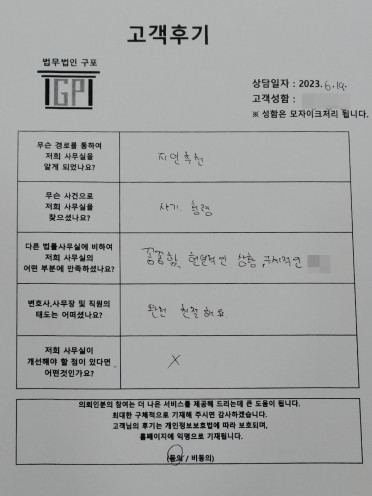 고객후기
법무법인 구포
GP
상담일자 : 2023. 6. 19.
고객성함 :
※ 성함은 모자이크처리 됩니다.
무슨 경로를 통하여
저희 사무실을
알게 되었나요?
지인추천
무슨 사건으로
저희 사무실을
찾으셨나요?
사기, 횡령
다른 법률사무실에 비하여
저희 사무실의
어떤 부분에 만족하셨나요?
꼼꼼함, 현실적인 상황, 구체적인
변호사,사무장 및 직원의
태도는 어떠셨나요?
완전 친절해요
저희 사무실이
개선해야 할 점이 있다면
어떤것인가요?
X
의뢰인분의 참여는 더 나은 서비스를 제공해 드리는데 큰 도움이 됩니다.
최대한 구체적으로 기재해 주시면 감사하겠습니다.
고객님의 후기는 개인정보보호법에 따라 보호되며,
홈페이지에 익명으로 기재됩니다.
(동의 / 비동의)